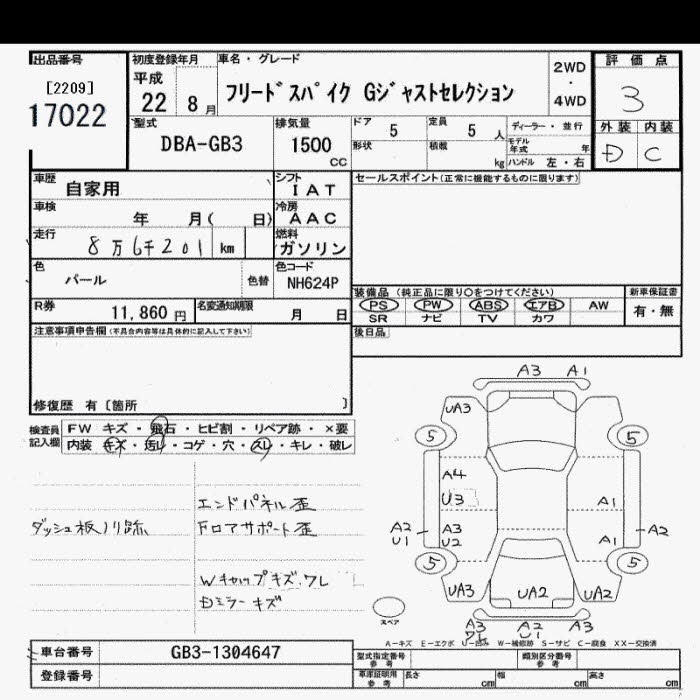 出品番号
[2209]
17022
初度登録年月
平成
22 8 月
車名・グレード
フリードスパイク Gジャストセレクション
2WD
・
4WD
評価点
3
外装 内装
D C
型式
DBA-GB3
排気量
1500
CC
ドア 5
定員 5 人
形状
積載 kg
ディーラー・並行
モデル年式 年
ハンドル 左・右
車歴 自家用
シフト
IAT
車検 年 月( 日)
冷房
AAC
走行 8万6千201 km
燃料
ガソリン
色 パール
色替
色コード
NH624P
R券 11,860 円
名変通知期限 月 日
セールスポイント(正常に機能するものに限ります)
装備品 (純正品に限り○をつけてください)
PS PW ABS エアB AW
SR ナビ TV カワ
新車保証書
有・無
後日品
注意事項申告欄(不具合内容等は具体的に記入して下さい)
修復歴 有 〔箇所 〕
検査員記入欄
FW キズ・飛石・ヒビ割・リペア跡・×要
内装 キズ・汚レ・コゲ・穴・スレ・キレ・破レ
ダッシュ板ノリ跡
エンドパネル歪
Fロアサポート歪
Wキャップキズ.ワレ
Dミラーキズ
A3 A1
UA3
5 5
A4
U3
A1
A2
U1
A3
U2
A1
A2
5 5
UA3 UA2 UA2
スペア
A3
ワレ
A2
U1
A3
A-キズ E-エクボ U-凹み W-補修跡 S-サビ C-腐食 XX-交換済
車台番号 GB3-1304647
登録番号
型式指定番号
参考
類別区分番号
参考
車庫証明用
参考
長さ cm 幅 cm 高さ cm